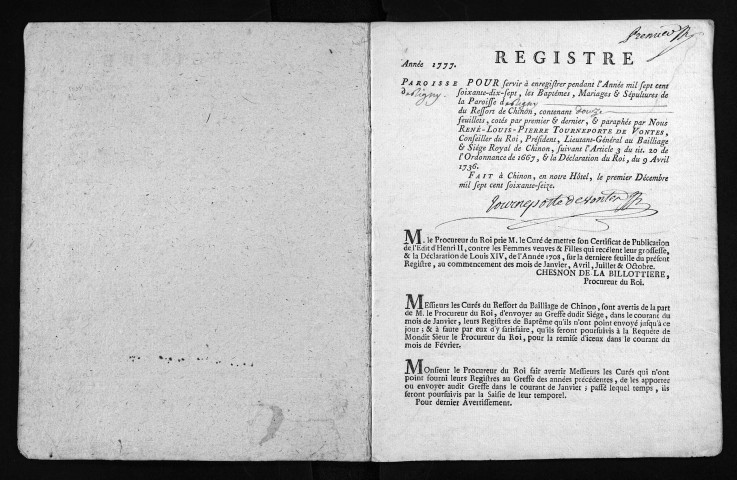 Premier
REGISTRE
Année 1777.
PAROISSE
POUR servir à enregistrer pendant l'Année mil sept cent
soixante-dix-sept, les Baptêmes, Mariages & Sépultures de
la Paroisse
du Ressort de Chinon, contenant douze
feuillets, cotés par premier & dernier, & paraphés par Nous
RENÉ-LOUIS-PIERRE TOURNEPORTE DE VONTES,
Conseiller du Roi, Président, Lieutant-Général au Bailliage
& Siége Royal de Chinon, suivant l'Article 3 du tit. 20 de
l'Ordonnance de 1667, & la Déclaration du Roi, du 9 Avril
1736.
FAIT à Chinon, en notre Hôtel, le premier Décembre
mil sept cent soixante-seize.
Tourneporte de Vontes
M. le Procureur du Roi prie M. le Curé de mettre son Certificat de Publication
de l'Edit d'Henri II, contre les Femmes veuves & Filles qui recélent leur grossesse,
& la Déclaration de Louis XIV, de l'Année 1708, sur la derniere feuille du présent
Registre, au commencement des mois de Janvier, Avril, Juillet & Octobre.
CHESNON DE LA BILLOTTIERE,
Procureur du Roi.
MESSIEURS les Curés du Ressort du Bailliage de Chinon, sont avertis de la part
de M. le Procureur du Roi, d'envoyer au Greffe dudit Siége, dans le courant du
mois de Janvier, leurs Registres de Baptême qu'ils n'ont point envoyé jusqu'à ce
jour; & à faute par eux d'y satisfaire, qu'ils seront poursuivis à la Requête de
Mondit Sieur le Procureur du Roi, pour la remise d'iceux dans le courant du
mois de Février.
MONSIEUR le Procureur du Roi fait avertir Messieurs les Curés qui n'ont
point fourni leurs Registres au Greffe des années précédentes, de les apporter
ou envoyer audit Greffe dans le courant de Janvier; passé lequel temps, ils
seront poursuivis par la Saisie de leur temporel.
Pour dernier Avertissement.